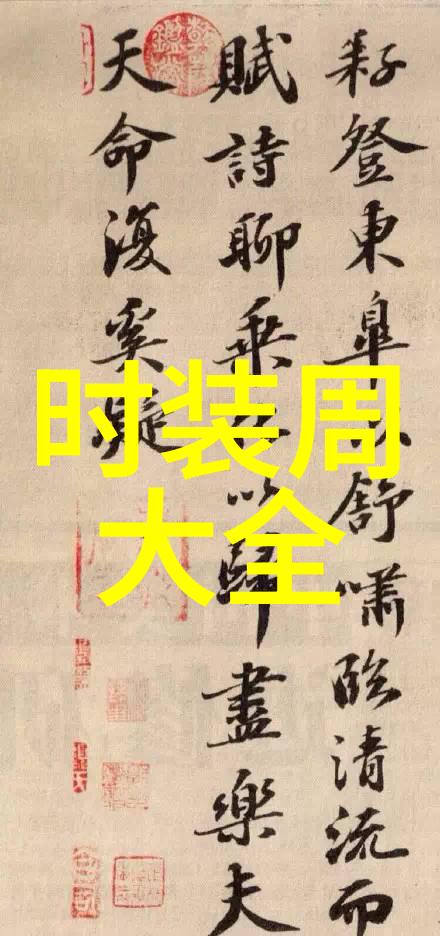 耔登東皐以舒嘯臨清流而
賦詩聊乘化以歸盡樂夫
天命復奚疑
时装周
大全